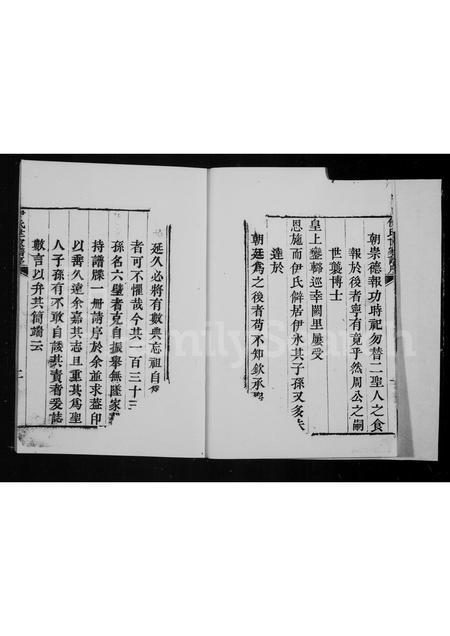 朝崇德報功時祀勿替二聖人之食
報於後者寧有竟乎然周公之嗣
世襲博士
皇上鑾輅巡幸闕里屢受
恩施而伊氏僻居伊水其子孫又多
達於
朝廷為之後者苟不仰欽承
延久必將有數典忘祖自
者可不懼哉今其一百三十三
孫名六璧者克自振舉無墜家
持譜牒一冊請序於余並求葢印
以垂久遠余嘉其志且重其為聖
人子孫有不敢自諉其責者爰誌
數言以弁其簡端云
二